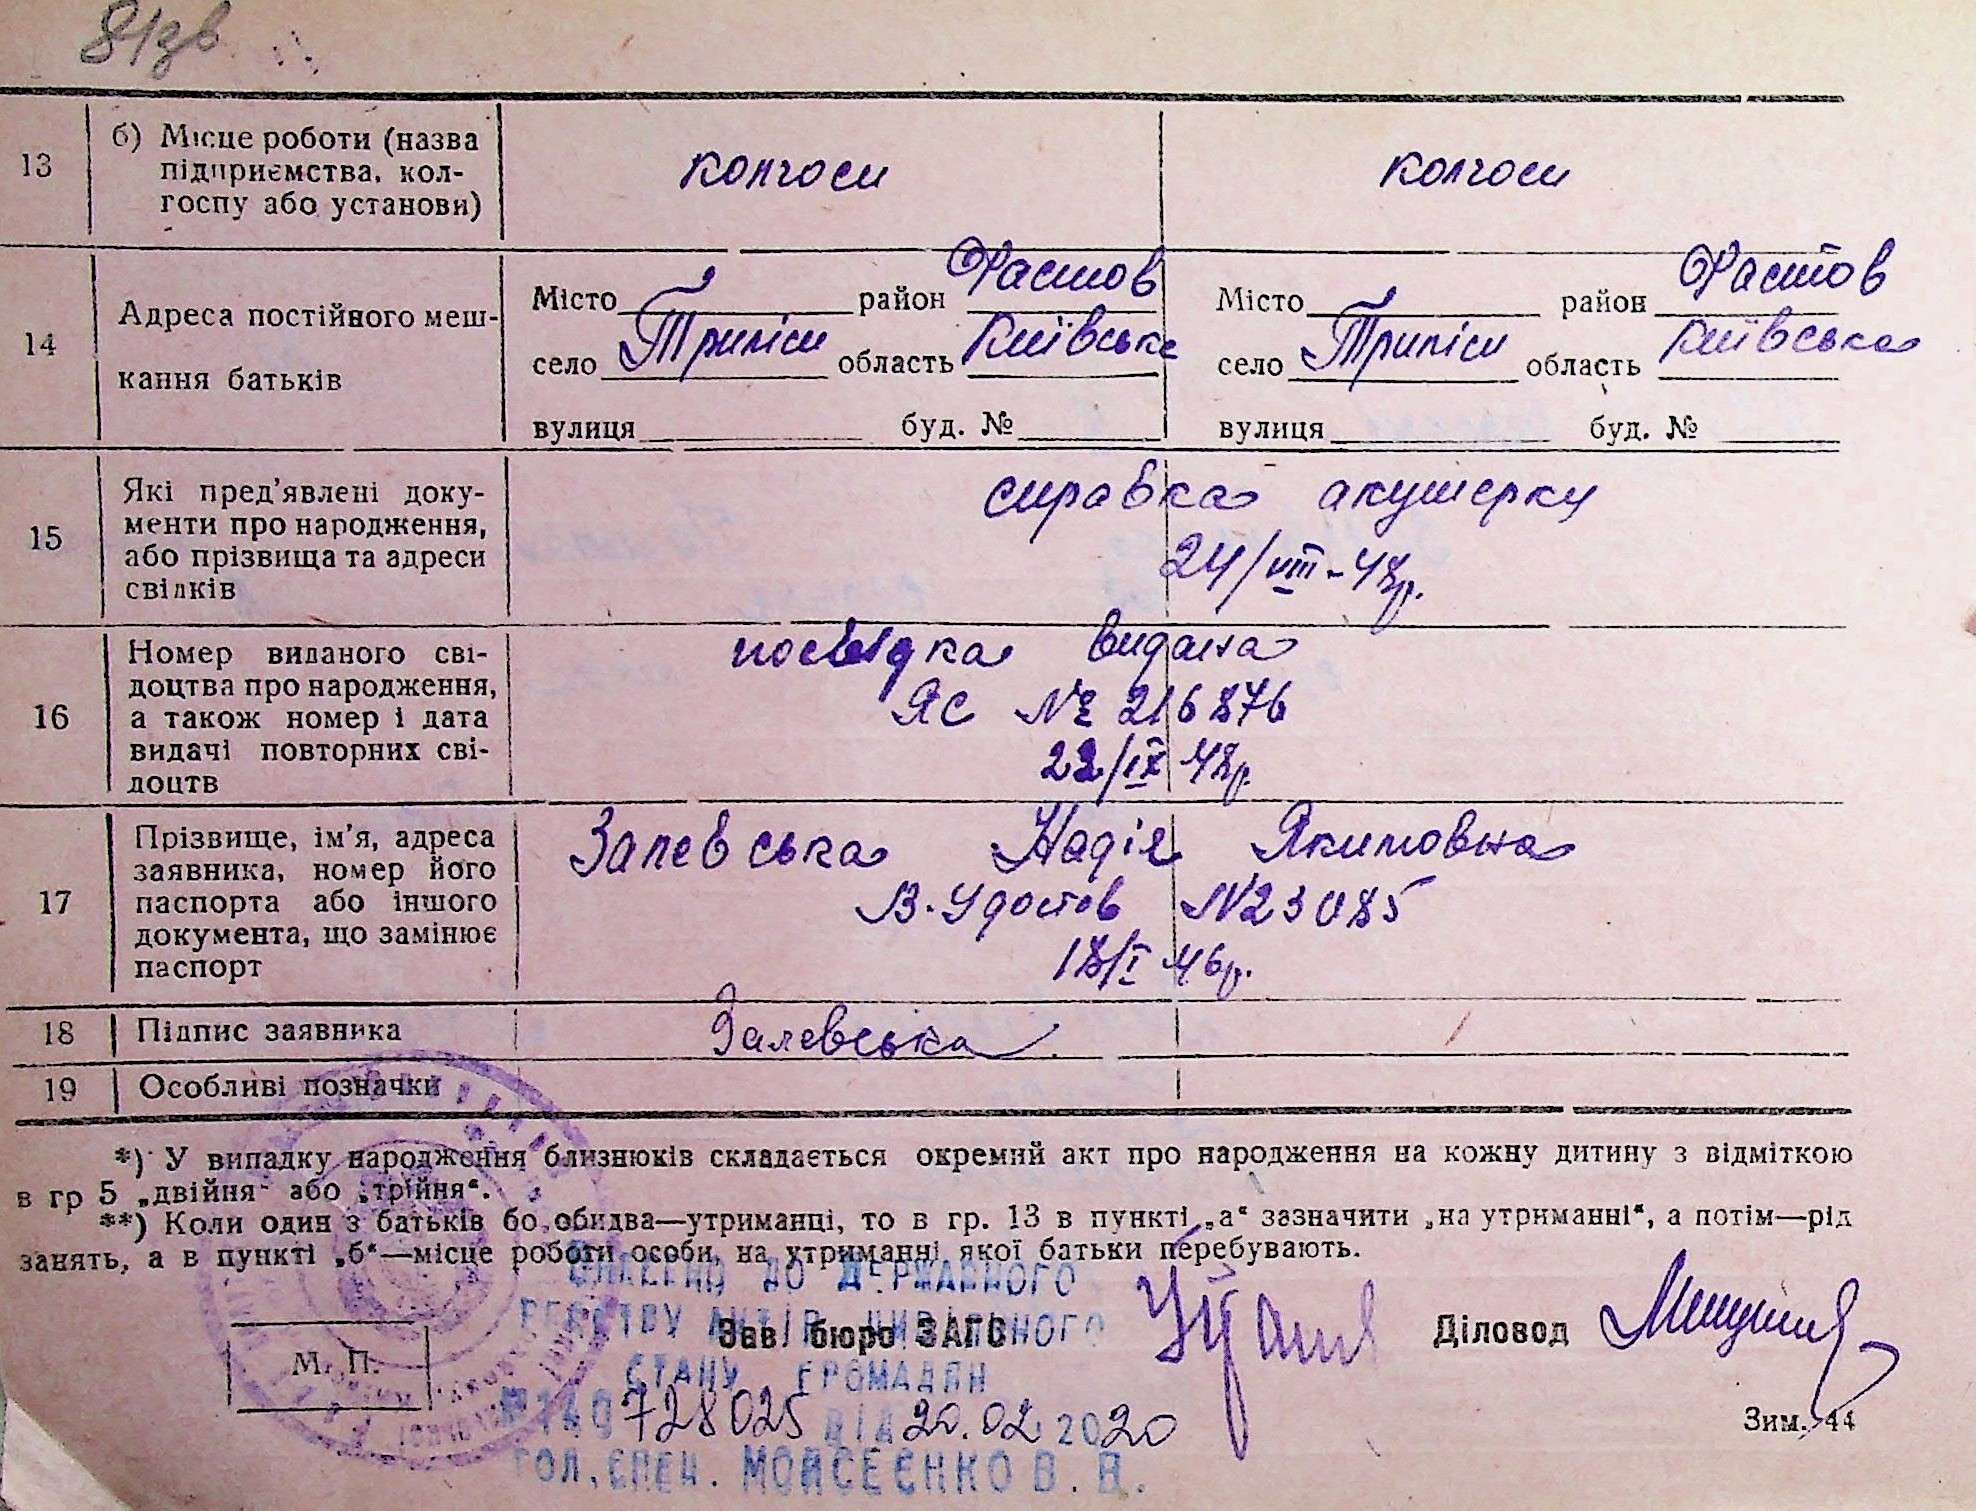 81зв
13
б) Місце роботи (назва
підприємства, кол-
госпу або установи)
колгосп
колгосп
14
Адреса постійного меш-
кання батьків
Місто район Фастов
село Триліси область Київська
вулиця буд. №
Місто район Фастов
село Триліси область Київська
вулиця буд. №
15
Які пред'явлені доку-
менти про народження,
або прізвища та адреси
свідків
справка акушерки
24/VIII-48р.
16
Номер виданого сві-
доцтва про народження,
а також номер і дата
видачі повторних сві-
доцтв
посвідка видана
ЯС № 216876
22/IX 48р.
17
Прізвище, ім'я, адреса
заявника, номер його
паспорта або іншого
документа, що замінює
паспорт
Залевська Надія Якимовна
В. Удостов N23085
18/I 46р.
18
Підпис заявника
Залевська
19
Особливі позначки
*) У випадку народження близнюків складається окремий акт про народження на кожну дитину з відміткою
в гр 5 „двійня“ або „трійня“.
**) Коли один з батьків бо обидва—утриманці, то в гр. 13 в пункті „а“ зазначити „на утриманні“, а потім—рід
занять, а в пункті „б“—місце роботи особи, на утриманні якої батьки перебувають.
ВНЕСЕНО ДО ДЕРЖАВНОГО
РЕЄСТРУ АКТІВ ЦИВІЛЬНОГО
Зав. бюро ЗАГС
Діловод
СТАНУ ГРОМАДЯН
М. П.
№ 140728025 ВІД 20.02 2020
ГОЛ. СПЕЦ. МОЙСЕЄНКО В. В.
Зим. 44